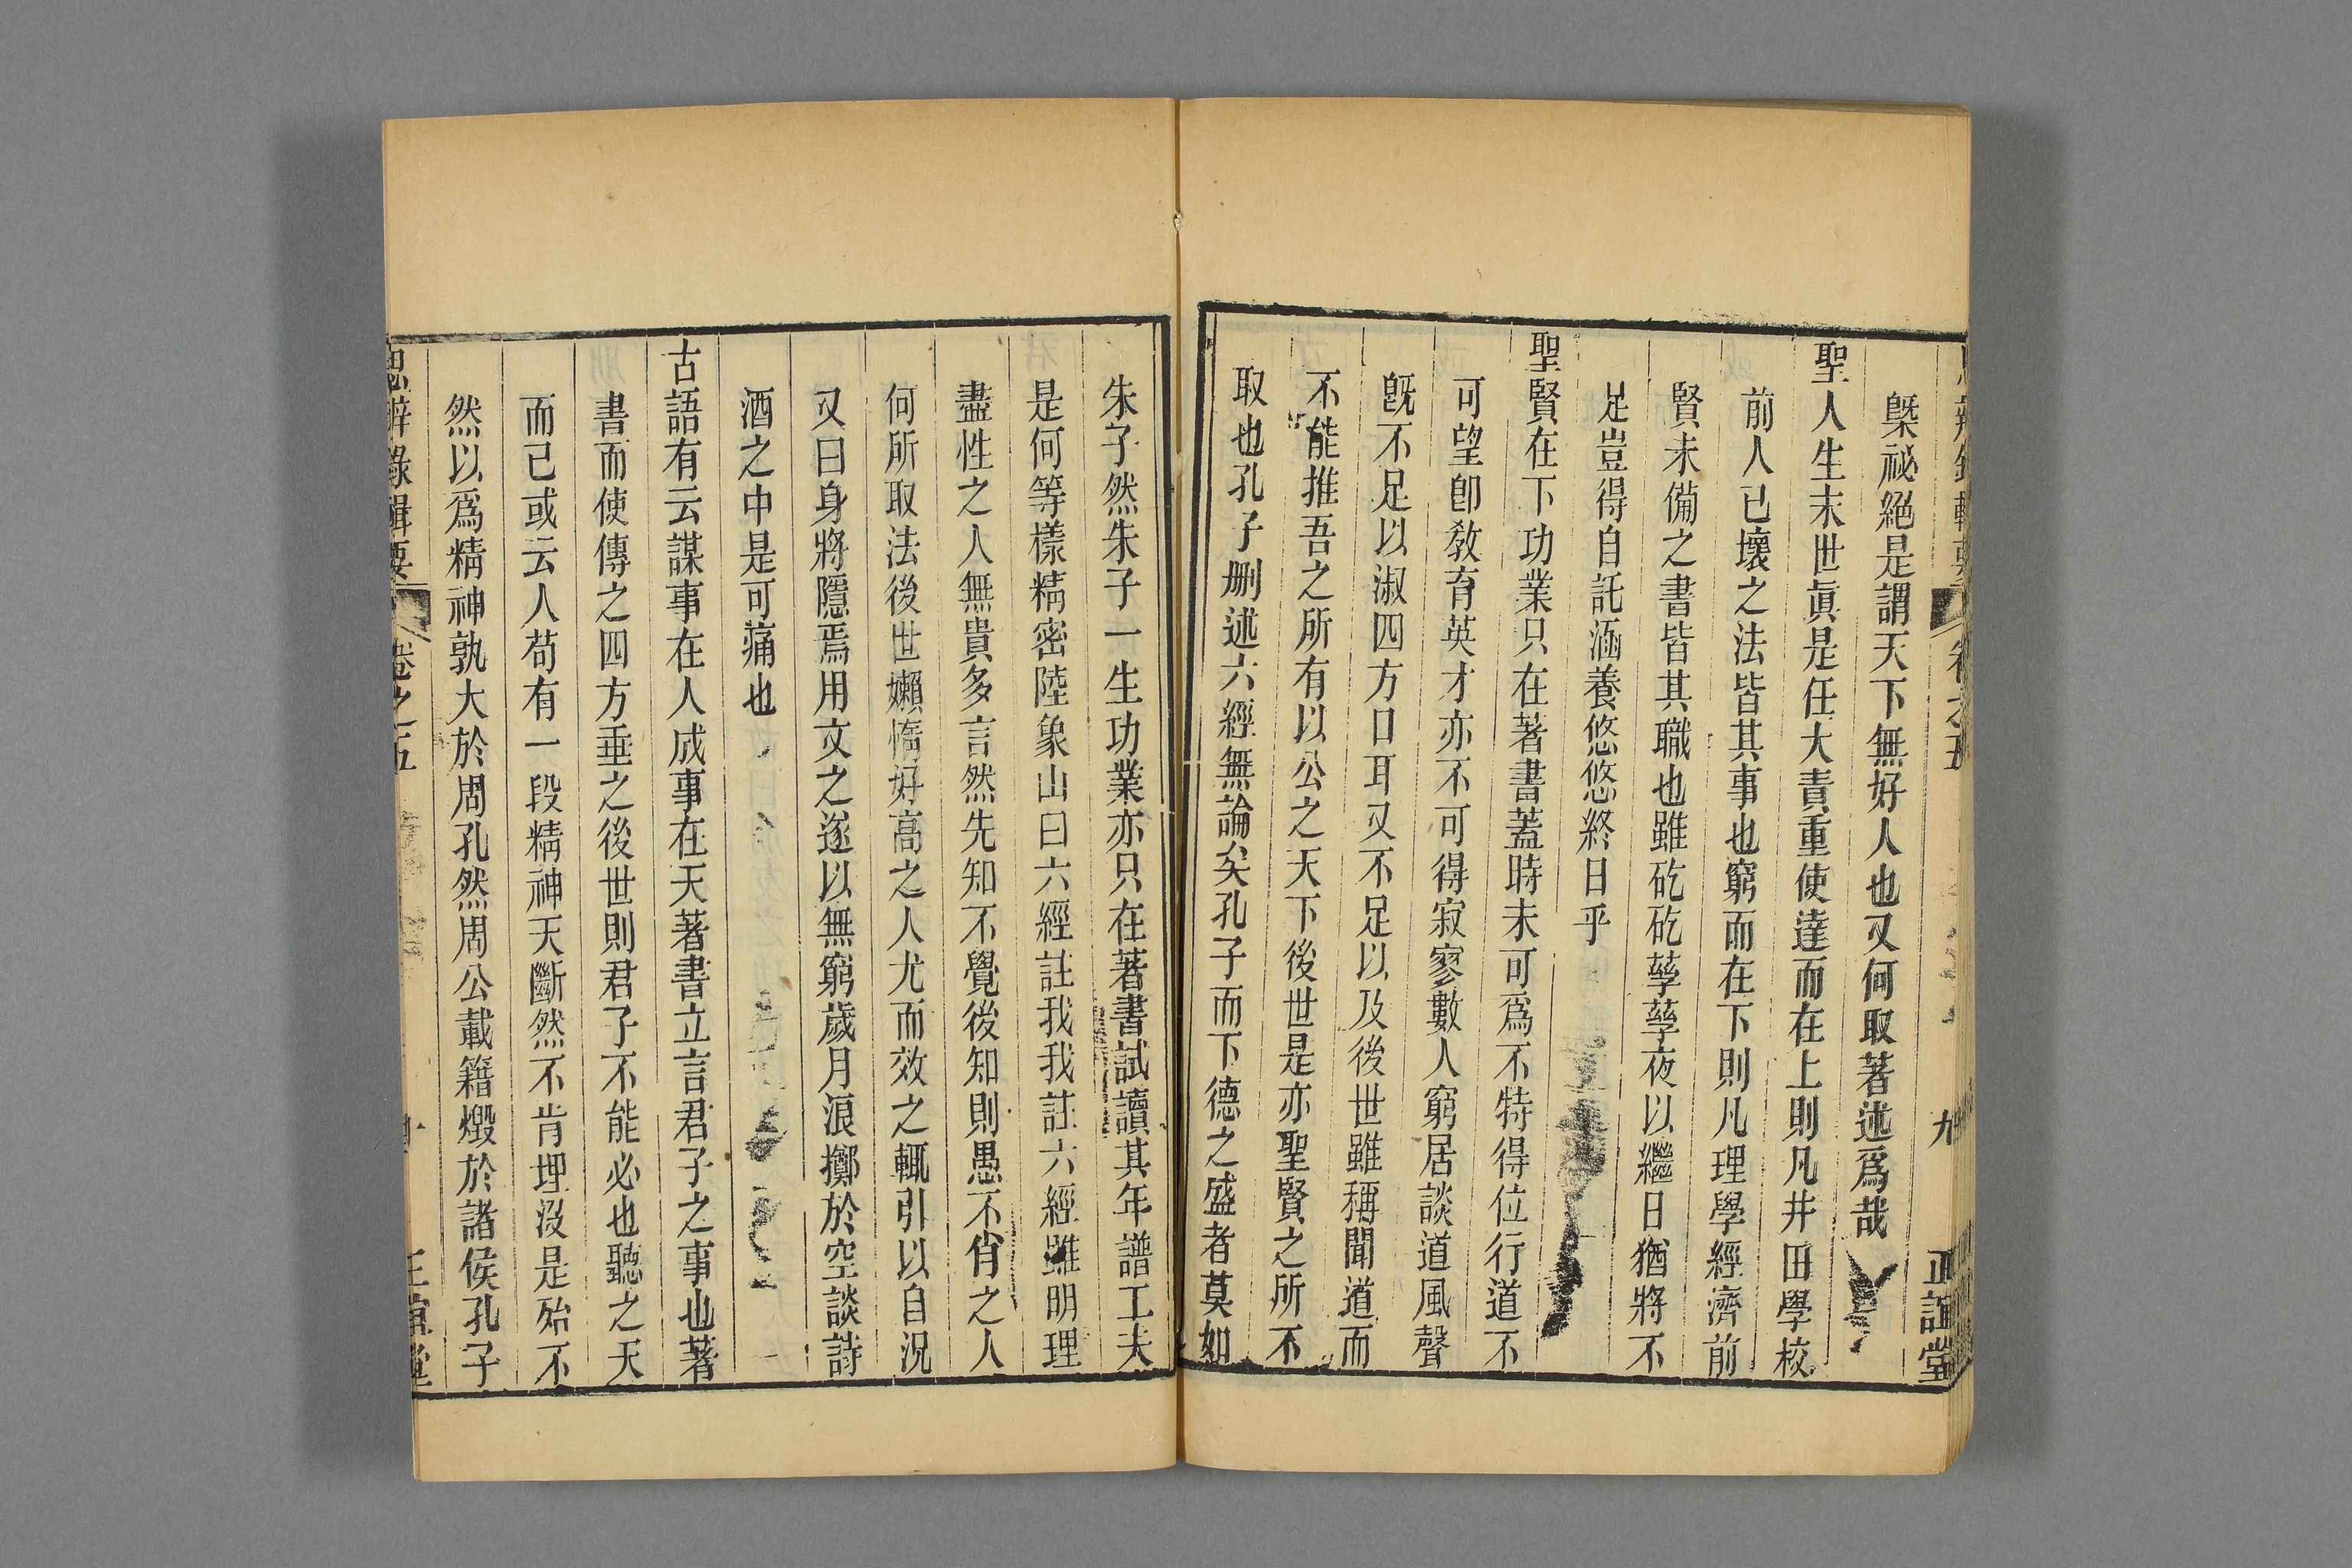 九
正誼堂
槩祕絕是謂天下無好人也又何取著述爲哉
聖人生末世眞是任大責重使達而在上則凡井田學校
前人已壞之法皆其事也窮而在下則凡理學經濟前
賢未備之書皆其職也雖矻矻孳孳夜以繼日猶將不
足豈得自託涵養悠悠終日乎
聖賢在下功業只在著書蓋時未可爲不特得位行道不
可望卽敎育英才亦不可得寂寥數人窮居談道風聲
旣不足以淑四方口耳又不足以及後世雖稱聞道而
不能推吾之所有以公之天下後世是亦聖賢之所不
取也孔子刪述六經無論矣孔子而下德之盛者莫如
朱子然朱子一生功業亦只在著書試讀其年譜工夫
是何等樣精密陸象山曰六經註我我註六經雖明理
盡性之人無貴多言然先知不覺後知則愚不肖之人
何所取法後世嬾惰好高之人尤而效之輒引以自況
又曰身將隱焉用文之遂以無窮歲月浪擲於空談詩
酒之中是可痛也
古語有云謀事在人成事在天著書立言君子之事也著
書而使傳之四方垂之後世則君子不能必也聽之天
而已或云人苟有一段精神天斷然不肯埋沒是殆不
然以爲精神孰大於周孔然周公載籍燬於諸侯孔子
思辨錄輯要
卷之五